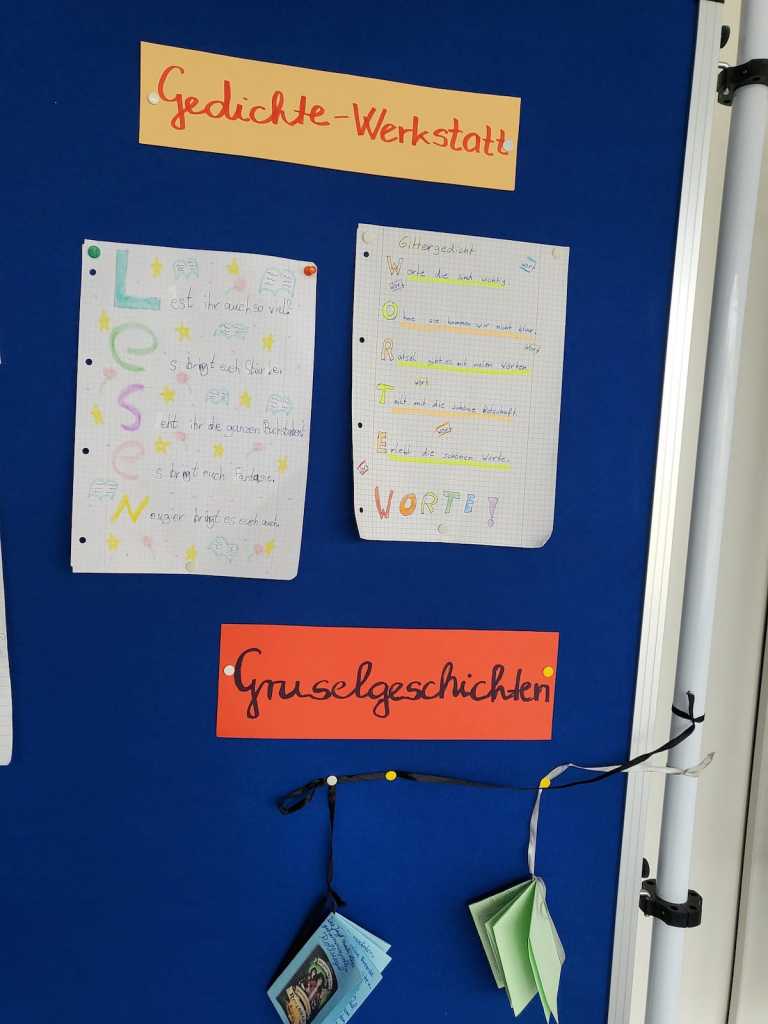 Gedichte-Werkstatt
Lest ihr auch so viel?
E's bringt euch
Seht ihr die ganzen Buchstaben?
Es bringt euch Fantasie.
Neugier bringt es euch auch.
Gittergedicht
Worte die sind wichtig.
wort
Wort
Ohne sie kommen wir nicht klar.
Wort
Ratsch geht es mit vielen Worten
Wort
Teilt mit die schöne Botschaft.
Erlebt die schönen Worte.
WORTE!
Gruselgeschichten